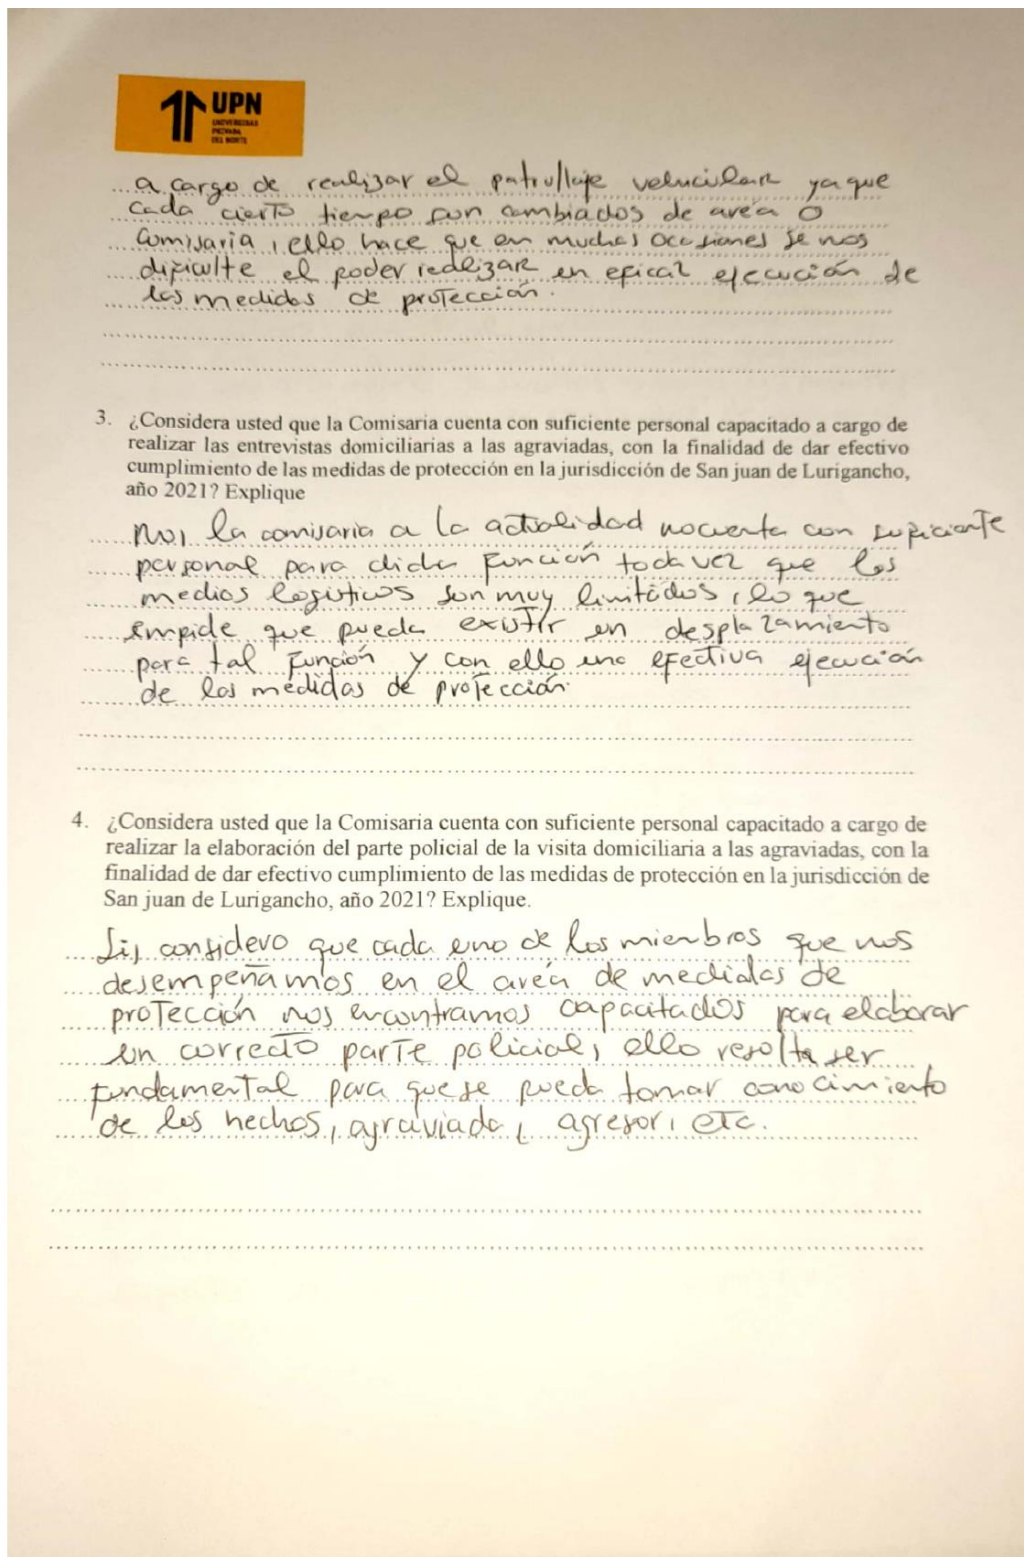 UPN
UNIVERSIDAD
PRIVADA
DEL NORTE
a cargo de realizar el patrullaje vehicular ya que
cada cierto tiempo son cambiados de area o
comisaria, ello hace que en muchas ocasiones se nos
dificulte el poder realizar un eficaz ejecución de
las medidas de protección.
3. ¿Considera usted que la Comisaria cuenta con suficiente personal capacitado a cargo de
realizar las entrevistas domiciliarias a las agraviadas, con la finalidad de dar efectivo
cumplimiento de las medidas de protección en la jurisdicción de San juan de Lurigancho,
año 2021? Explique
No, la comisaria a la actualidad no cuenta con suficiente
personal para dicha función toda vez que los
medios logisticos son muy limitados, lo que
impide que pueda existir un desplazamiento
para tal función y con ello una efectiva ejecución
de las medidas de protección.
4. ¿Considera usted que la Comisaria cuenta con suficiente personal capacitado a cargo de
realizar la elaboración del parte policial de la visita domiciliaria a las agraviadas, con la
finalidad de dar efectivo cumplimiento de las medidas de protección en la jurisdicción de
San juan de Lurigancho, año 2021? Explique.
Si, considero que cada uno de los miembros que nos
desempeñamos en el area de medidas de
protección nos encontramos capacitados para elaborar
un correcto parte policial, ello resulta ser
fundamental para que se pueda tomar conocimiento
de los hechos, agraviada, agresor, etc.